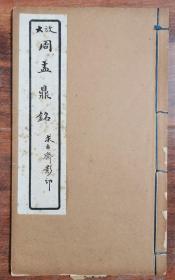 放大
周盂鼎銘
求古齋影印